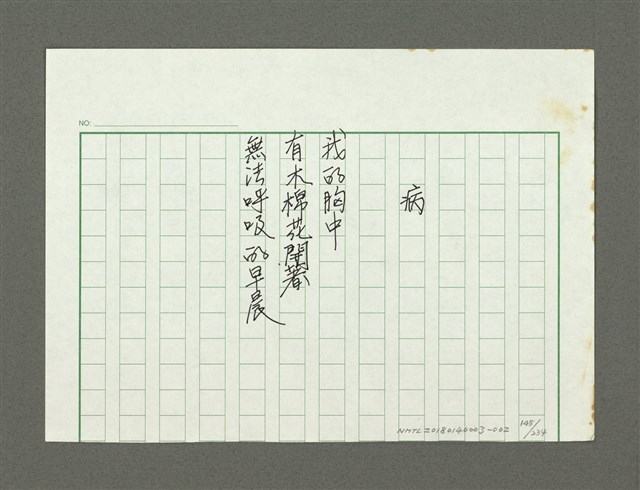 NO:
病
我的胸中
有木棉花開著
無法呼吸的早晨
NMTL20180140003-002
145/234